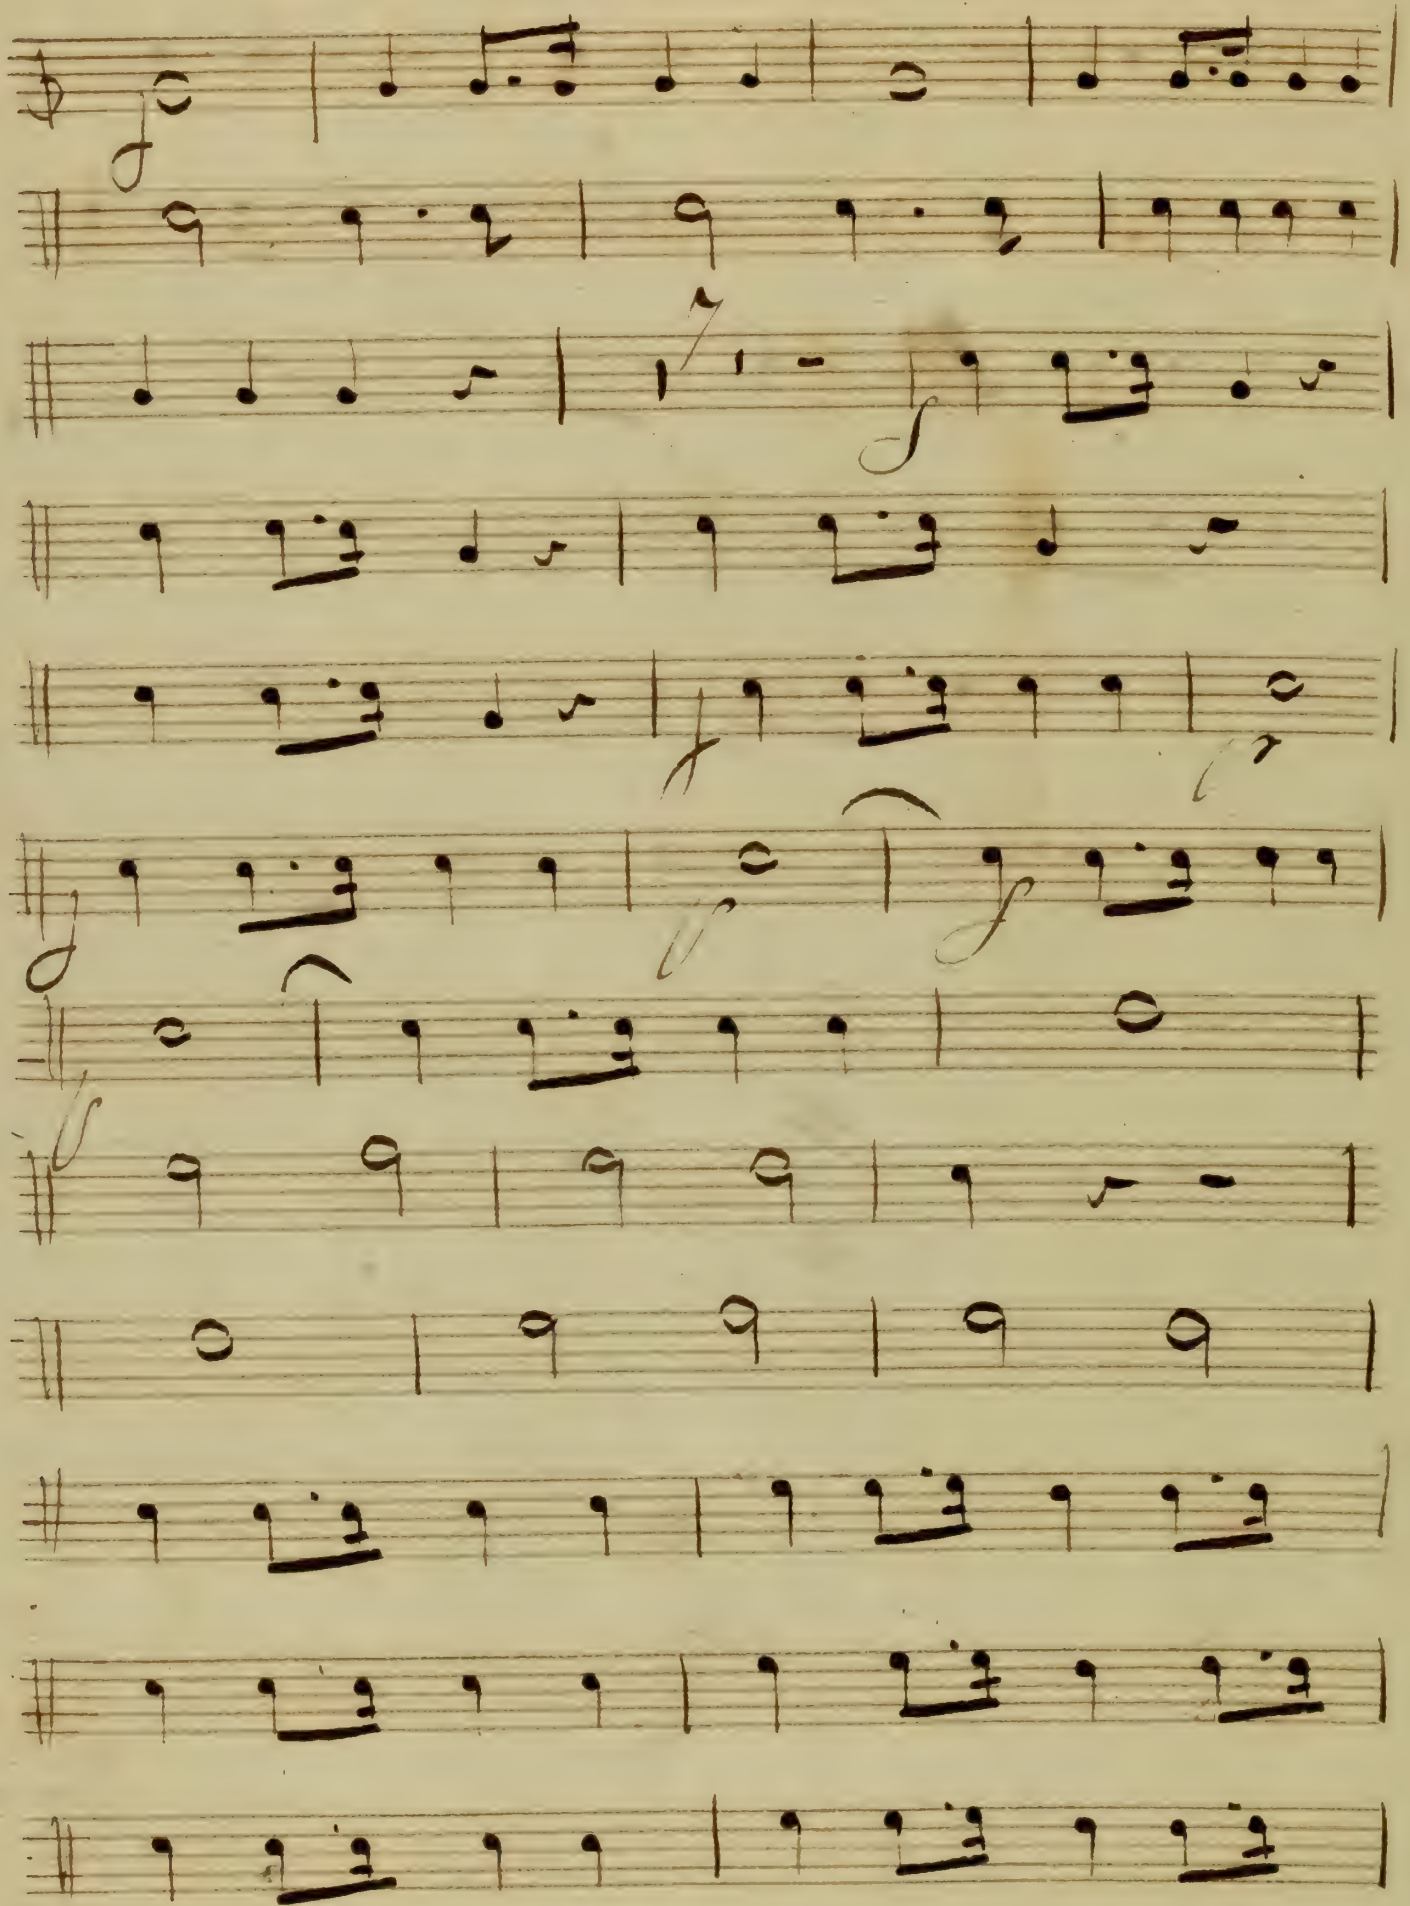 f
7
f
f p
f p f
p